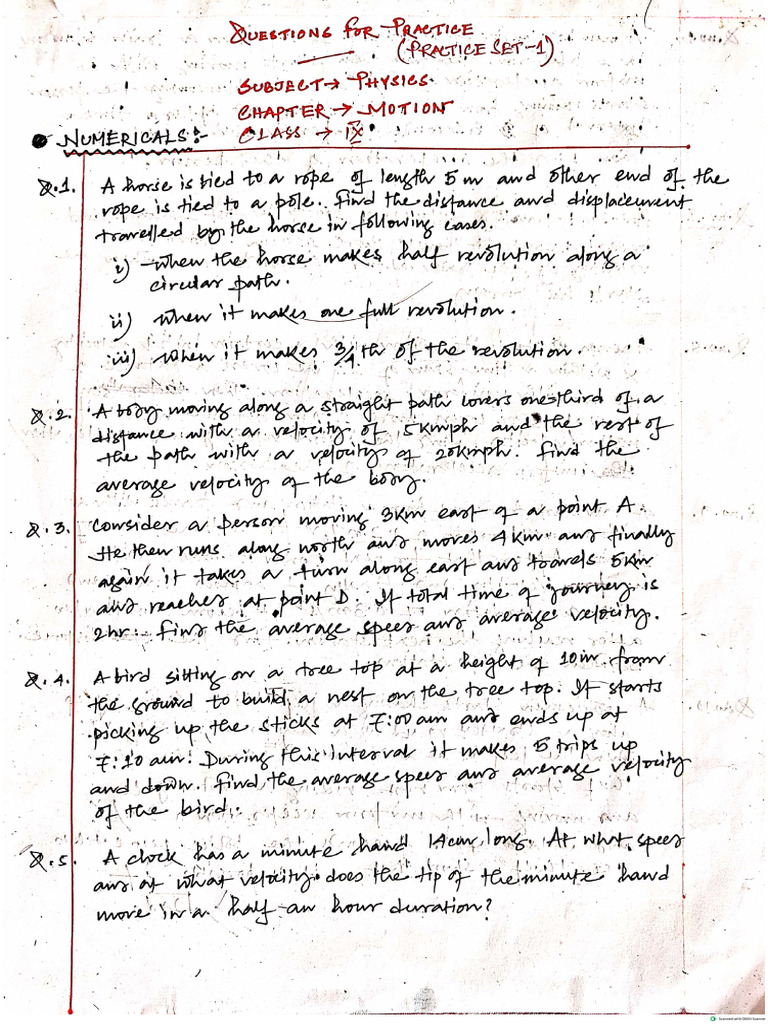 QUESTIONS FOR PRACTICE
(PRACTICE SET-1)
SUBJECT → PHYSICS.
CHAPTER → MOTION
CLASS → IX
NUMERICALS:-
Q.1. A horse is tied to a rope of length 5m and other end of the
rope is tied to a pole. Find the distance and displacement
travelled by the horse in following cases.
i) when the horse makes half revolution along a
circular path.
ii) when it makes one full revolution.
iii) when it makes 3/4th of the revolution.
Q.2. A body moving along a straight path covers one-third of a
distance with a velocity of 5kmph and the rest of
the path with a velocity of 20kmph. Find the
average velocity of the body.
Q.3. Consider a person moving 3km east of a point A.
He then runs along north and moves 4km and finally
again it takes a turn along east and travels 5km
and reaches at point D. If total time of journey is
2hr. Find the average speed and average velocity.
Q.4. A bird sitting on a tree top at a height of 10m from
the ground to build a nest on the tree top. It starts
picking up the sticks at 7:00am and ends up at
7:10 am. During this interval it makes 5 trips up
and down. Find the average speed and average velocity
of the bird.
Q.5. A clock has a minute hand 14cm long. At what speed
and at what velocity does the tip of the minute hand
move in a half an hour duration?
Scanned with OKEN Scanner